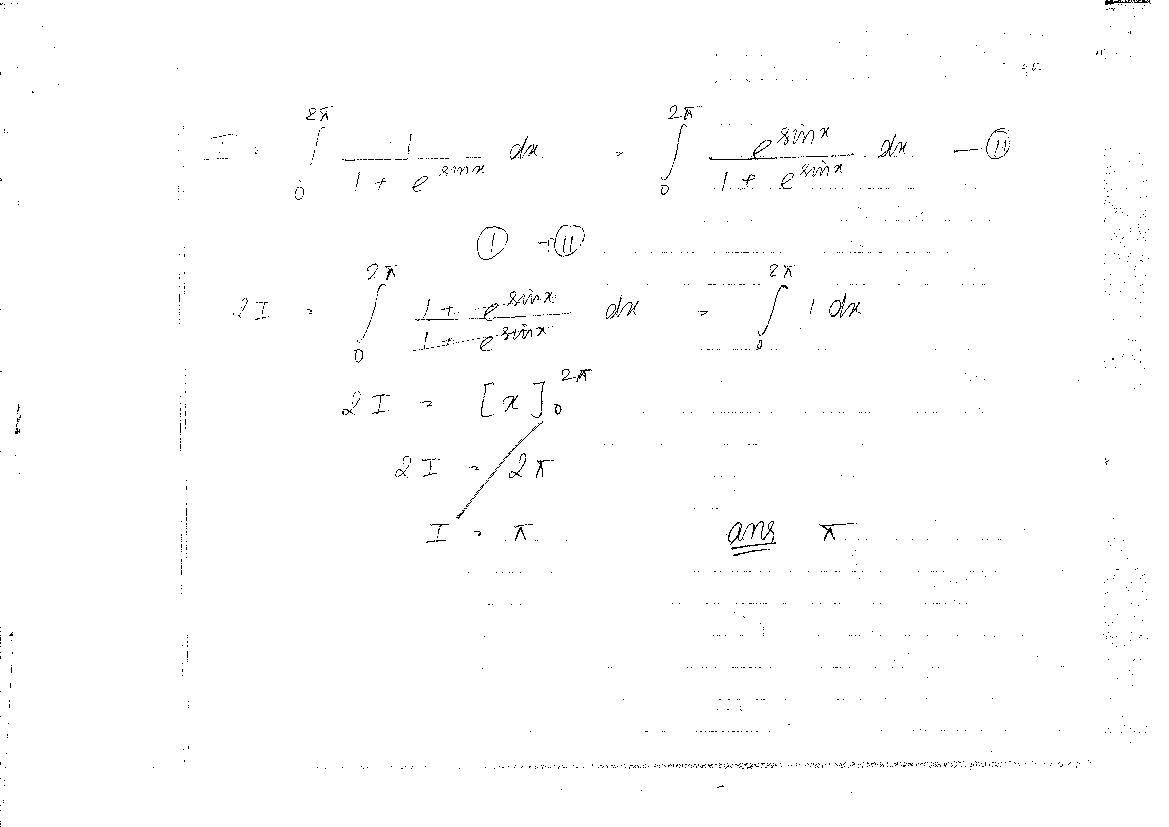 I = ∫₀^{2π} 1 / (1 + e^{sinx}) dx = ∫₀^{2π} e^{sinx} / (1 + e^{sinx}) dx — (II)
(I) + (II)
2I = ∫₀^{2π} (1 + e^{sinx}) / (1 + e^{sinx}) dx = ∫₀^{2π} 1 dx
2I = [x]₀^{2π}
2I = 2π
I = π ans π